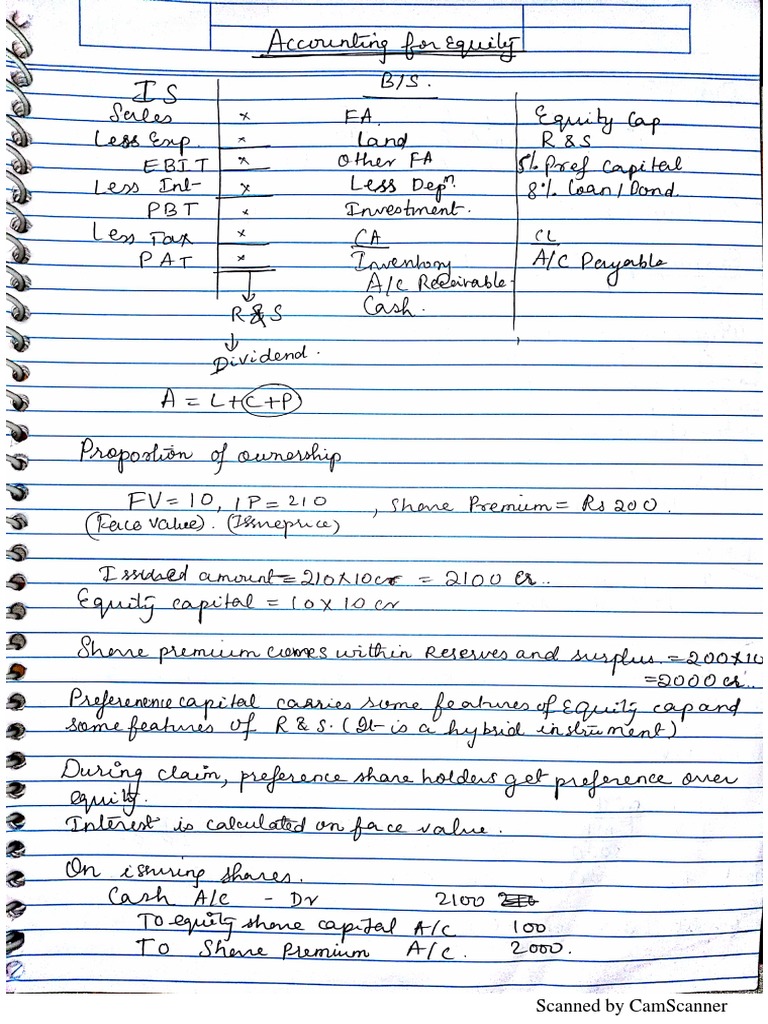 Accounting for Equity
IS
B/S.
Sales x FA. Equity Cap
Less Exp. x Land R & S
EBIT x Other FA 5% Pref Capital
Less Int- x Less Depⁿ. 8% Loan/Bond.
PBT x Investment.
Less Tax x CA CL
PAT x Inventory A/C Payable
A/C Receivable
R & S Cash.
Dividend.
A = L+C+P
Proportion of ownership
FV = 10, IP = 210, Share Premium = Rs 200.
(Face value). (Issue price)
Issued amount = 210 x 10 cr = 2100 cr..
Equity capital = 10 x 10 cr
Share premium comes within Reserves and surplus. = 200 x 10
= 2000 cr..
Preference capital carries some features of Equity cap and
some features of R & S. (It is a hybrid instrument)
During claim, preference share holders get preference over
equity.
Interest is calculated on face value.
On issuing shares.
Cash A/C - Dr 2100
To equity share capital A/C 100
To Share Premium A/C. 2000.
Scanned by CamScanner